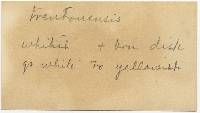 trentonensis
whitish + on disk
go white to yellowish